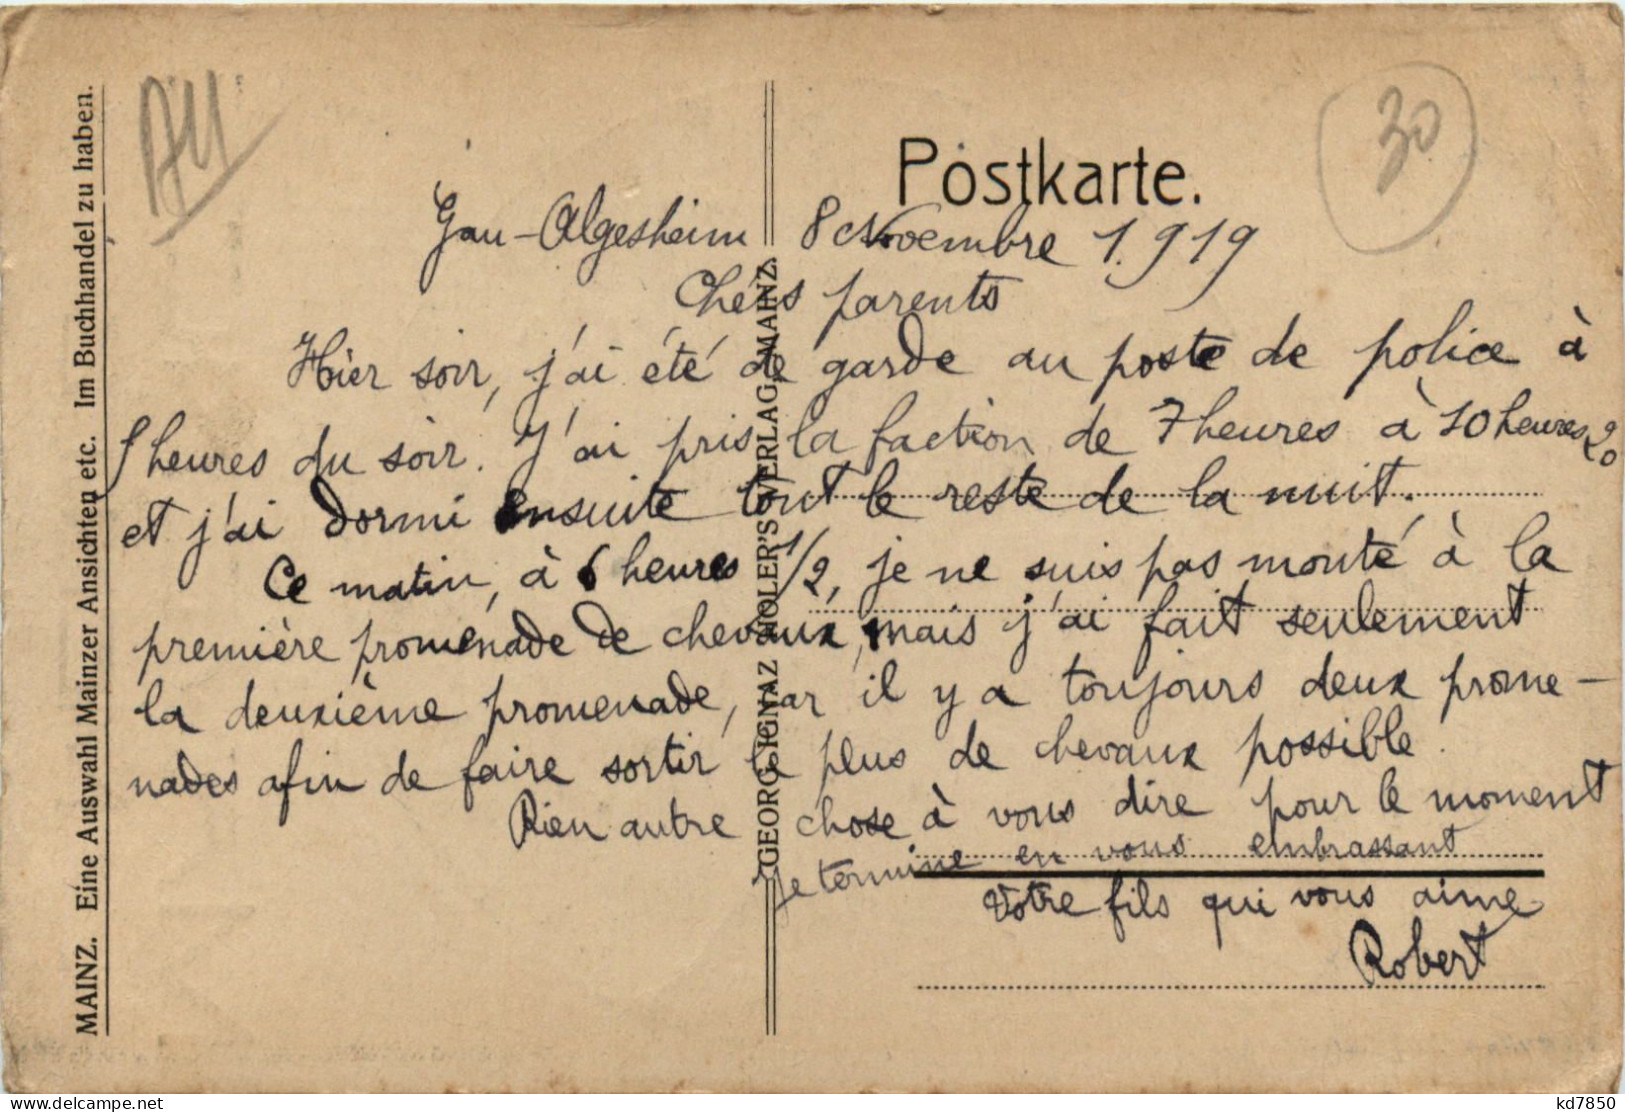 MAINZ. Eine Auswahl Mainzer Ansichten etc. Im Buchhandel zu haben.
30
Postkarte.
GEORG IGNAZ VERLAG, MAINZ.
Gau-Algesheim 8 Novembre 1.919
Chers parents
Hier soir, j'ai été de garde au poste de police à
heures du soir. J'ai pris la faction de 7 heures à 10 heures 20
et j'ai dormi ensuite tout le reste de la nuit.
Ce matin, à 6 heures 1/2, je ne suis pas monté à la
première promenade de chevaux, mais j'ai fait seulement
la deuxième promenade, car il y a toujours deux prome-
nades afin de faire sortir le plus de chevaux possible.
Rien autre chose à vous dire pour le moment
Je termine en vous embrassant
Votre fils qui vous aime
Robert
kd7850